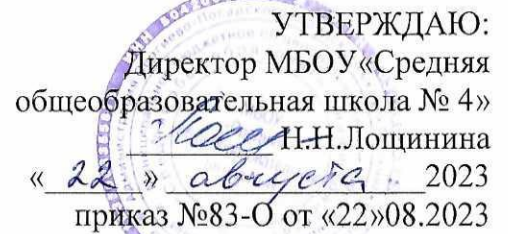 УТВЕРЖДАЮ:
Директор МБОУ«Средняя
общеобразовательная школа № 4»
Н.Н.Лощинина
« 22 » августа 2023
приказ №83-О от «22»08.2023